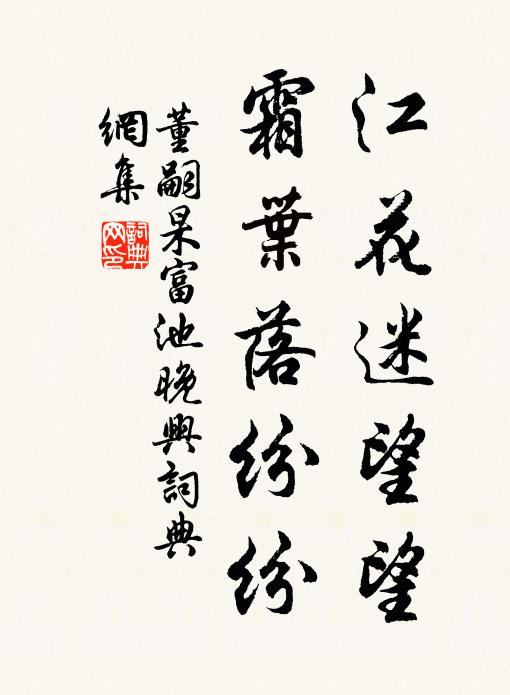 江花迷望望
霜葉落紛紛
董嗣杲富池晚興詞典
網集
詞典
网印